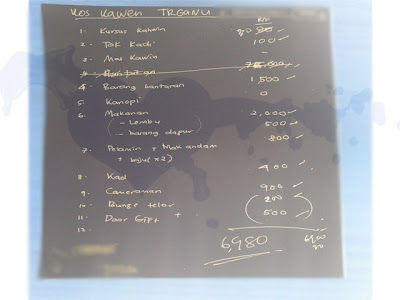 KOS KAWEN TRGANU
RM
1. Kursus Kahwin 80
2. Tok Kadi 100
3. Mas Kawin –
4. Barang hantaran 1,500
5. Kanopi 0
6. Makanan
- Lembu 2,000
- barang dapur 500
7. Pelamin + Mak andam 800
+ baju (x2)
8. Kad 400
9. Cameraman 900
10. Bunga telor 200
11. Door Gift + 500
12.
6,980
6900
80